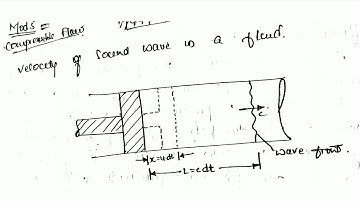 Mod5 =
Compressible Flow
velocity of sound wave in a fluid.
C
x=udt
L=cdt
wave front.